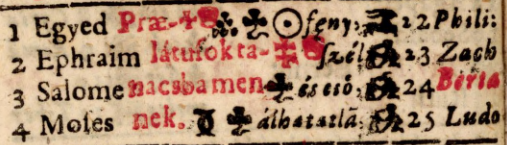 1 Egyed Præ- fény: 22 Phili:
2 Ephraim látusokta- szél 23 Zach
3 Salome nacsba men és eső; 24 Berta
4 Moſes nek. álhatatlā: 25 Ludo